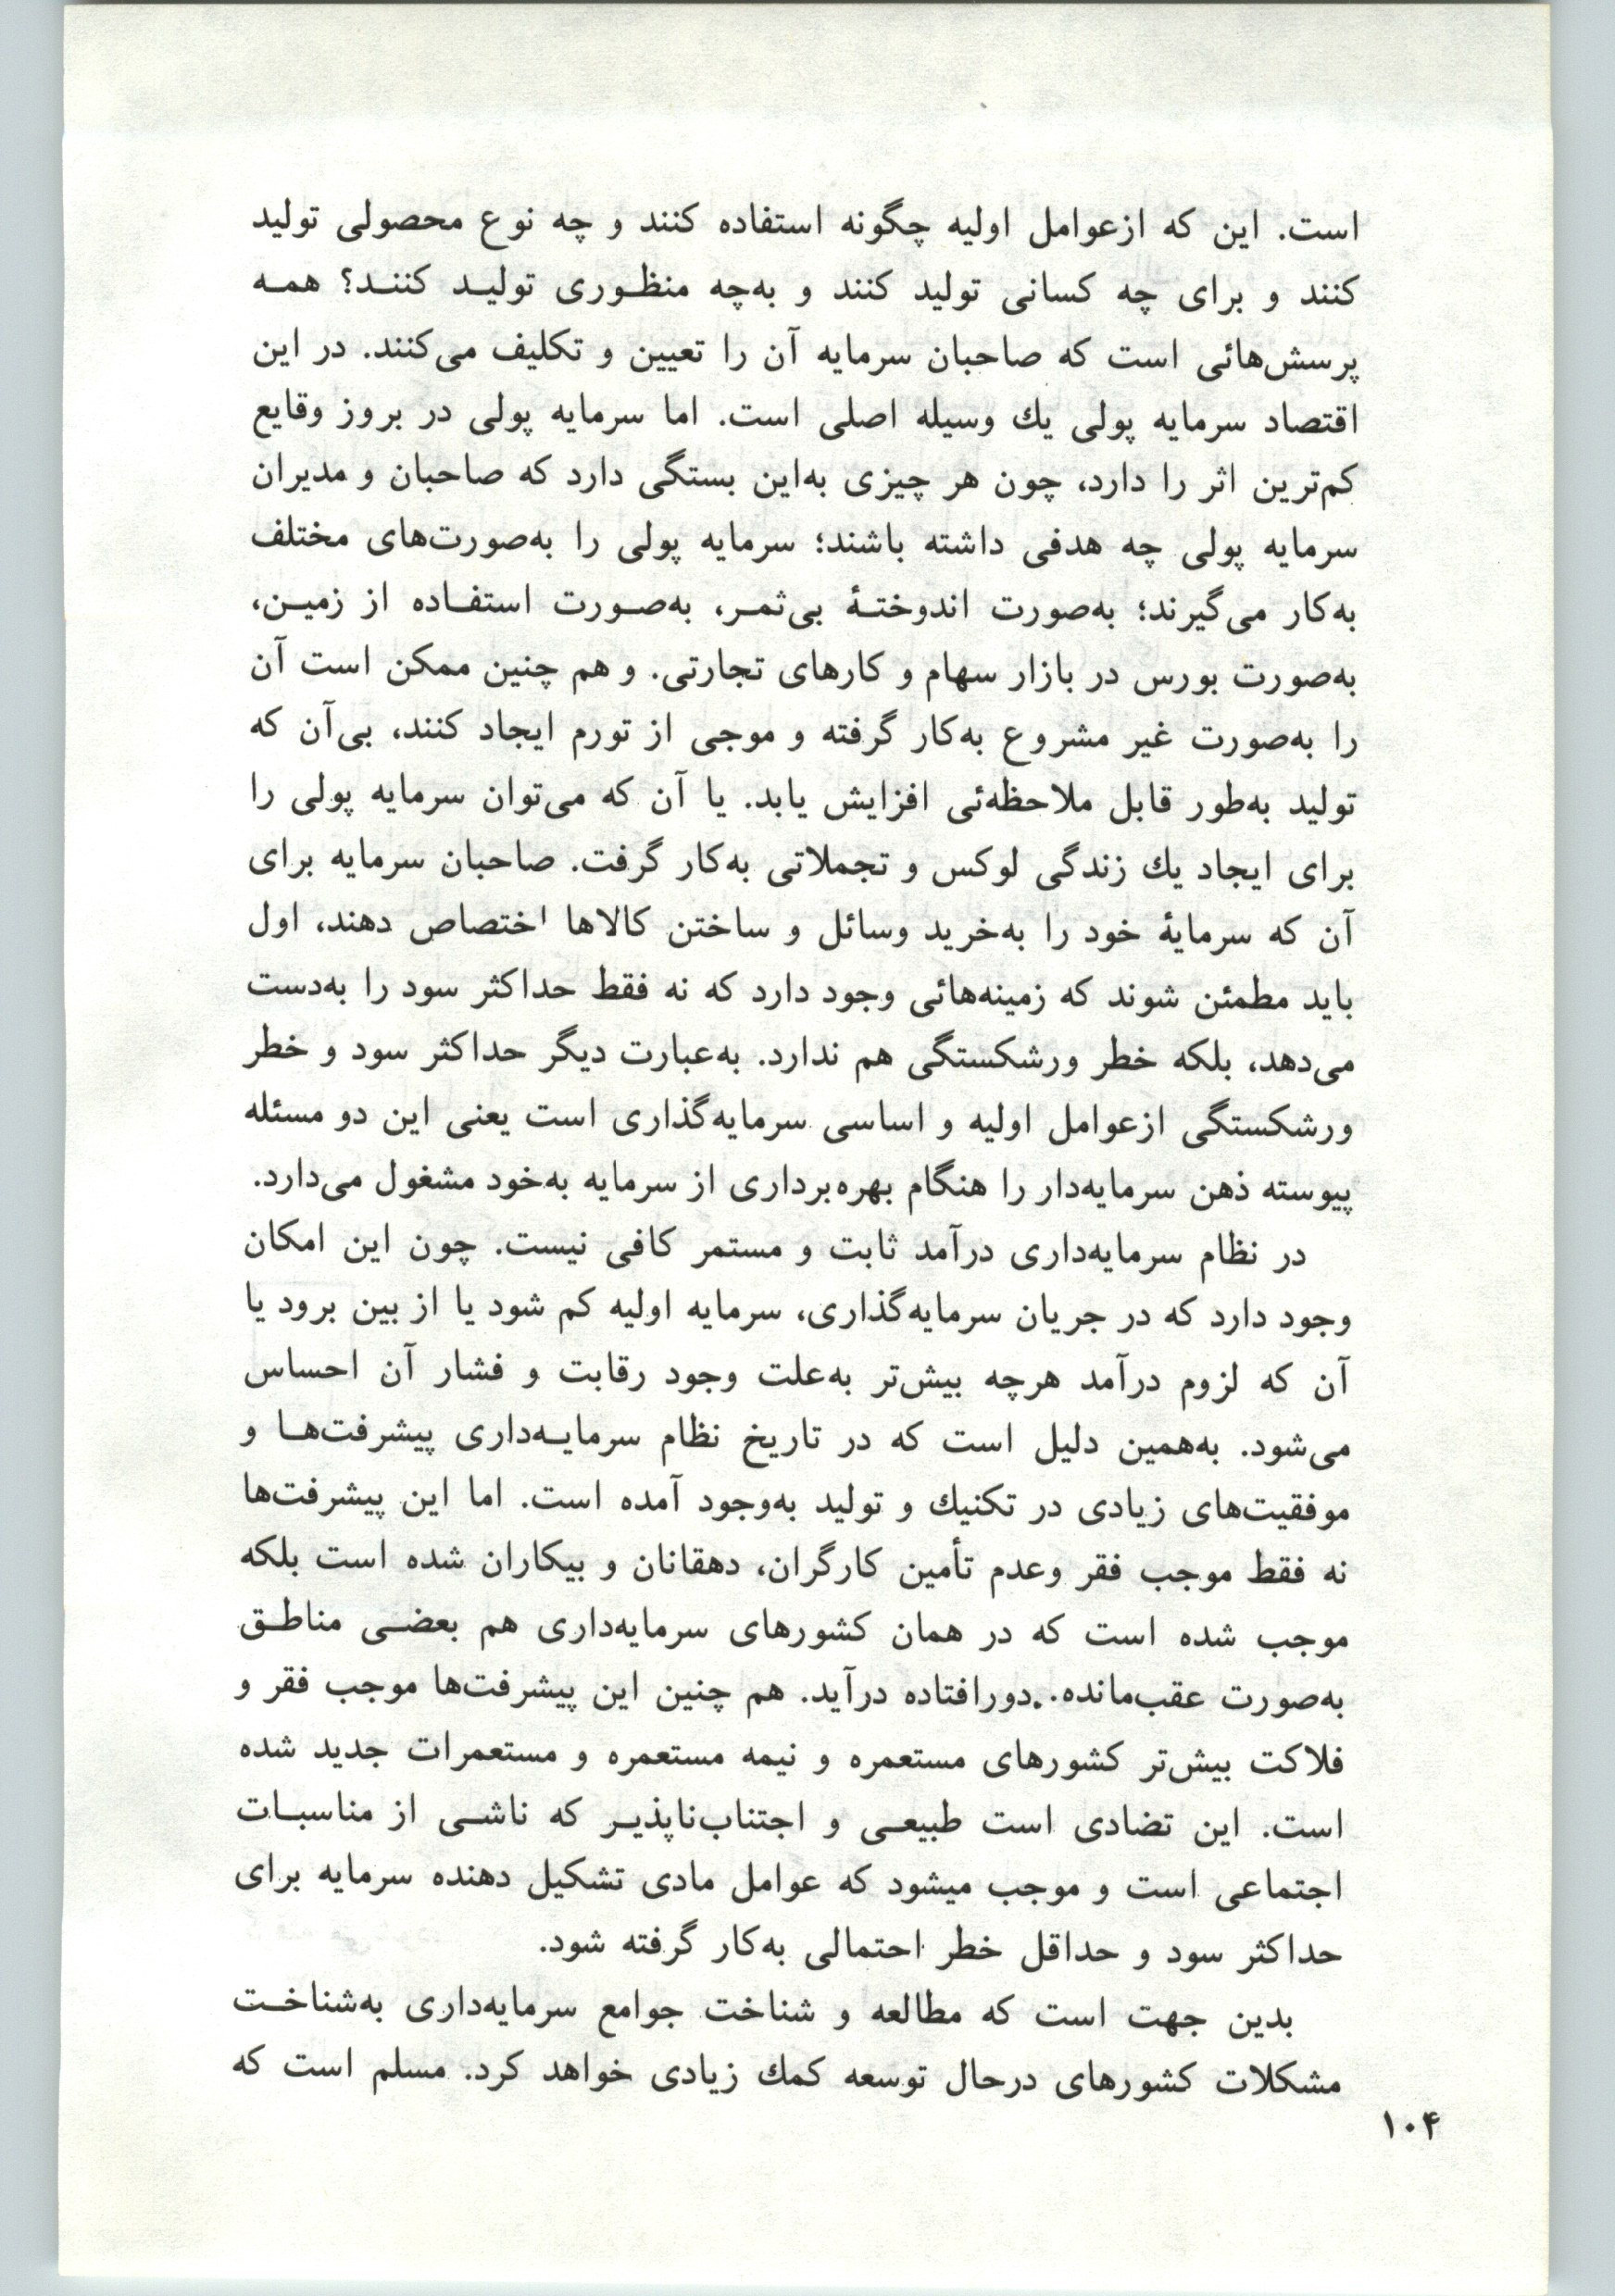 است. این که ازعوامل اولیه چگونه استفاده کنند و چه نوع محصولی تولید
کنند و برای چه کسانی تولید کنند و به‌چه منظـوری تولیـد کننـد؟ همـه
پرسش‌هائی است که صاحبان سرمایه آن را تعیین و تکلیف می‌کنند. در این
اقتصاد سرمایه پولی یك وسیله اصلی است. اما سرمایه پولی در بروز وقایع
کم‌ترین اثر را دارد، چون هر چیزی به‌این بستگی دارد که صاحبان و مدیران
سرمایه پولی چه هدفی داشته باشند؛ سرمایه پولی را به‌صورت‌های مختلف
به‌کار می‌گیرند؛ به‌صورت اندوختـهٔ بی‌ثمـر، به‌صـورت استفـاده از زمیـن،
به‌صورت بورس در بازار سهام و کارهای تجارتی. و هم چنین ممکن است آن
را به‌صورت غیر مشروع به‌کار گرفته و موجی از تورم ایجاد کنند، بی‌آن که
تولید به‌طور قابل ملاحظه‌ئی افزایش یابد. یا آن که می‌توان سرمایه پولی را
برای ایجاد یك زندگی لوکس و تجملاتی به‌کار گرفت. صاحبان سرمایه برای
آن که سرمایهٔ خود را به‌خرید وسائل و ساختن کالاها اختصاص دهند، اول
باید مطمئن شوند که زمینه‌هائی وجود دارد که نه فقط حداکثر سود را به‌دست
می‌دهد، بلکه خطر ورشکستگی هم ندارد. به‌عبارت دیگر حداکثر سود و خطر
ورشکستگی ازعوامل اولیه و اساسی سرمایه‌گذاری است یعنی این دو مسئله
پیوسته ذهن سرمایه‌دار را هنگام بهره‌برداری از سرمایه به‌خود مشغول می‌دارد.
در نظام سرمایه‌داری درآمد ثابت و مستمر کافی نیست. چون این امکان
وجود دارد که در جریان سرمایه‌گذاری، سرمایه اولیه کم شود یا از بین برود یا
آن که لزوم درآمد هرچه بیش‌تر به‌علت وجود رقابت و فشار آن احساس
می‌شود. به‌همین دلیل است که در تاریخ نظام سرمایـه‌داری پیشرفت‌هـا و
موفقیت‌های زیادی در تکنیك و تولید به‌وجود آمده است. اما این پیشرفت‌ها
نه فقط موجب فقر وعدم تأمین کارگران، دهقانان و بیکاران شده است بلکه
موجب شده است که در همان کشورهای سرمایه‌داری هم بعضـی مناطـق
به‌صورت عقب‌مانده..دورافتاده درآید. هم چنین این پیشرفت‌ها موجب فقر و
فلاکت بیش‌تر کشورهای مستعمره و نیمه مستعمره و مستعمرات جدید شده
است. این تضادی است طبیعـی و اجتناب‌ناپذیـر که ناشـی از مناسبـات
اجتماعی است و موجب میشود که عوامل مادی تشکیل دهنده سرمایه برای
حداکثر سود و حداقل خطر احتمالی به‌کار گرفته شود.
بدین جهت است که مطالعه و شناخت جوامع سرمایه‌داری به‌شناخـت
مشکلات کشورهای درحال توسعه کمك زیادی خواهد کرد. مسلم است که
۱۰۴